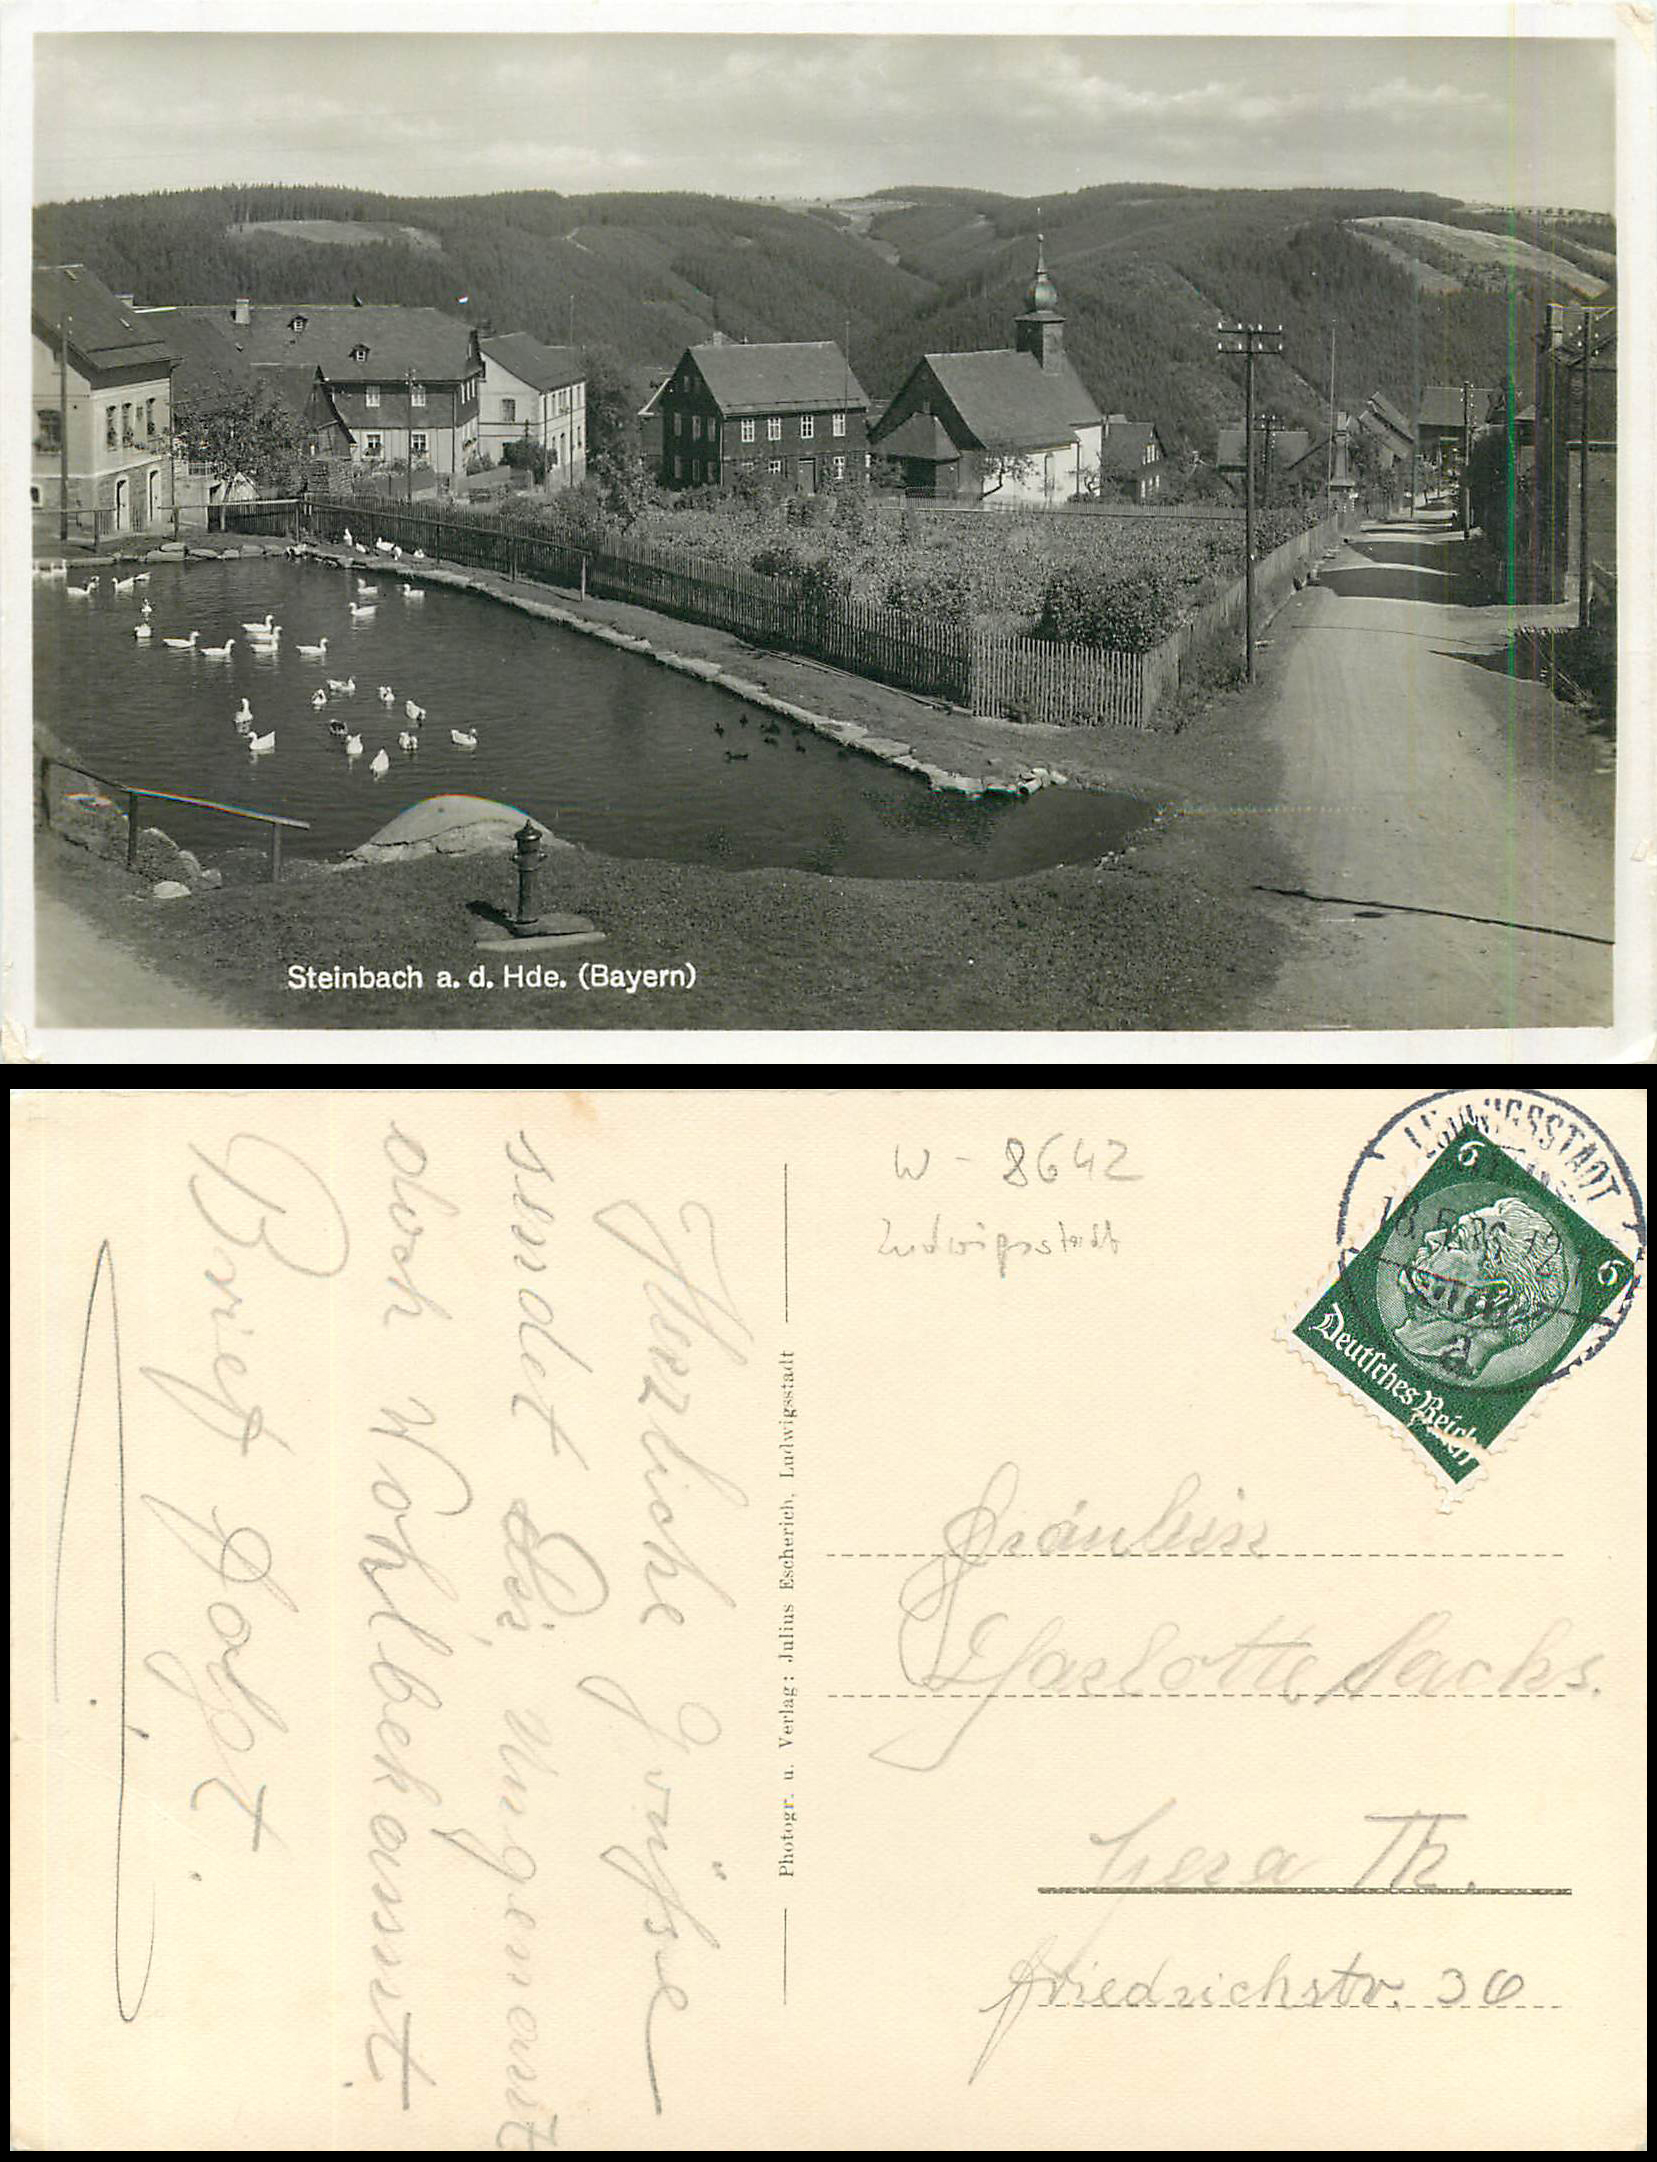 Steinbach a. d. Hde. (Bayern)
W - 8642
Ludwigsstadt
LUDWIGSSTADT
6
6
Deutsches Reich
d
Fräulein
Charlotte Sachs.
Gera Th.
Friedrichstr. 36
Photogr. u. Verlag: Julius Escherich, Ludwigsstadt
Herzliche Grüsse
sendet Dir, Ungenannt
doch Wohlbekannt.
Brief folgt.